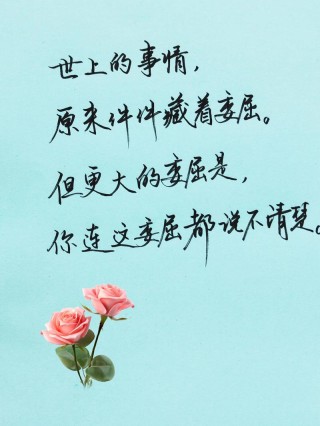 世上的事情，
原来件件藏着委屈。
但更大的委屈是，
你连这委屈都说不清楚。